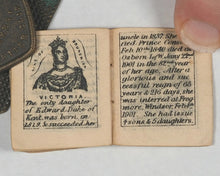 VICTORIA.
The only daughter
of Edward Duke of
Kent was born in
1819. Succeeded her
uncle in 1837. She
Prince
Feb. 10th 1840 died
Osborne Jan 22nd
1901 in the 82nd year
of her age. After a
glorious and
successful reign of 63
years & 216 days, she
was interred at Frog
more, Windsor Feb
1901. She had issue
4 sons & 5 daughters.